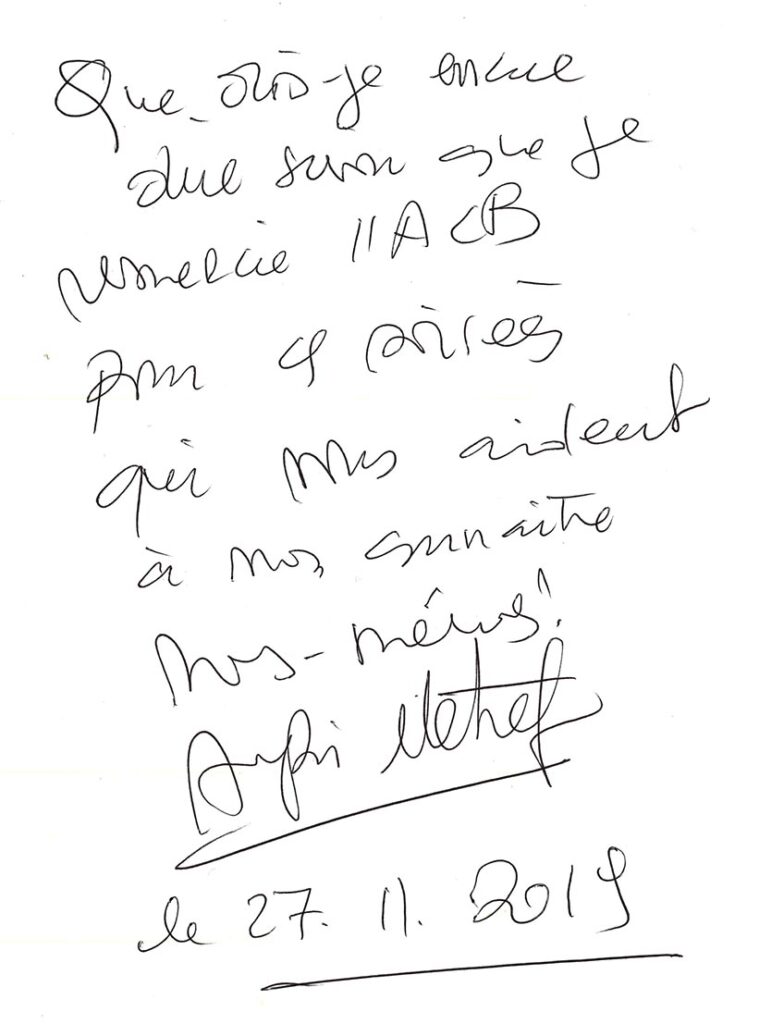 Que dois-je encore
dire sinon que je
remercie l'ACB
pour ces soirées
qui nous aident
à nous connaitre
nous-mêmes!
Arezki Metref
le 27.11.2019